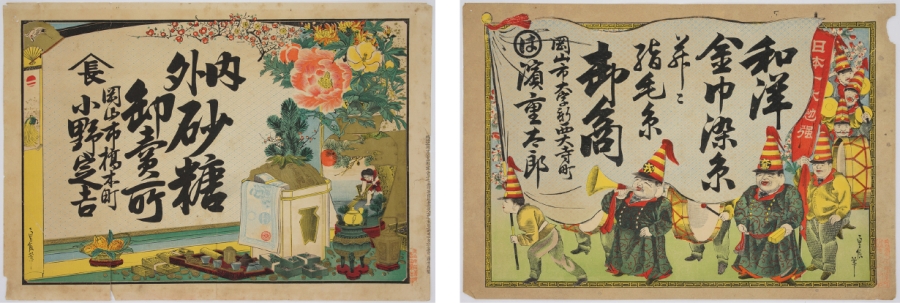 内外
砂糖
卸賣所
岡山市橋本町
長 小野
日本一大勉强
和洋
金巾染糸
并ニ
毛糸
卸商
岡山市大字新西大寺町
は 濱重太郎